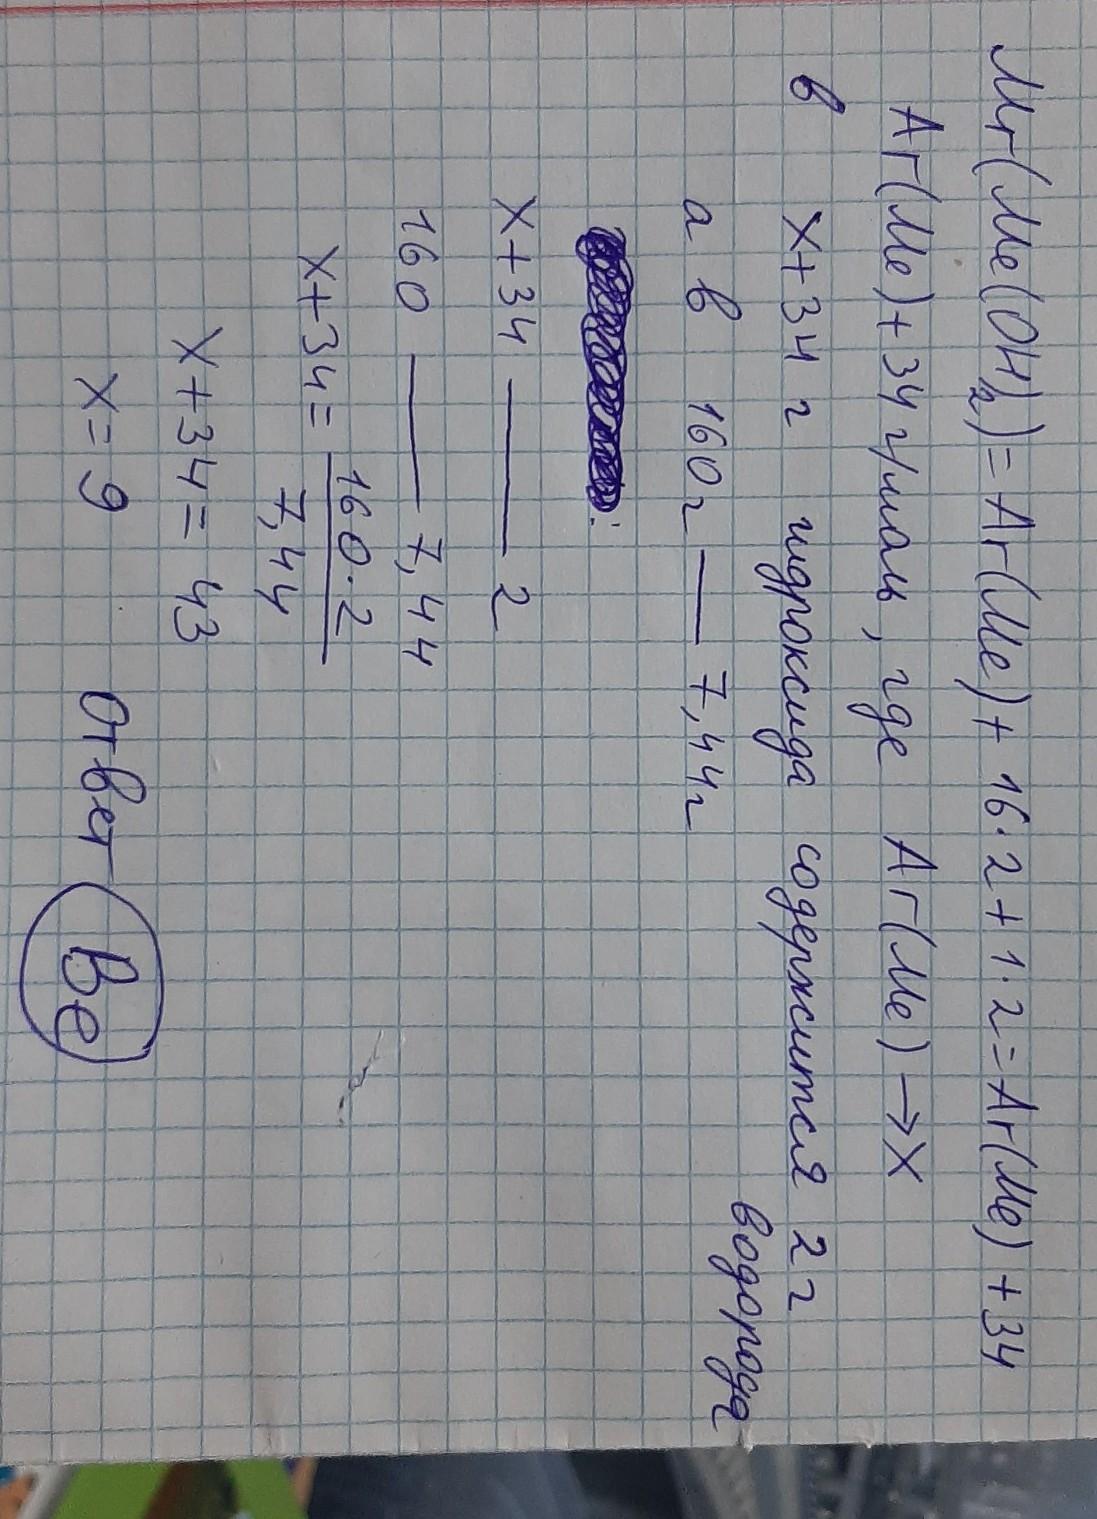 Mr(Me(OH)₂)=Ar(Me)+16·2+1·2=Ar(Me)+34
Ar(Me)+34 г/моль, где Ar(Me)→x
в x+34 г гидроксида содержится 2 г водорода
а в 160 г — 7,44 г
x+34 — 2
160 — 7,44
x+34= 160·2/7,44
x+34=43
x=9
Ответ Be